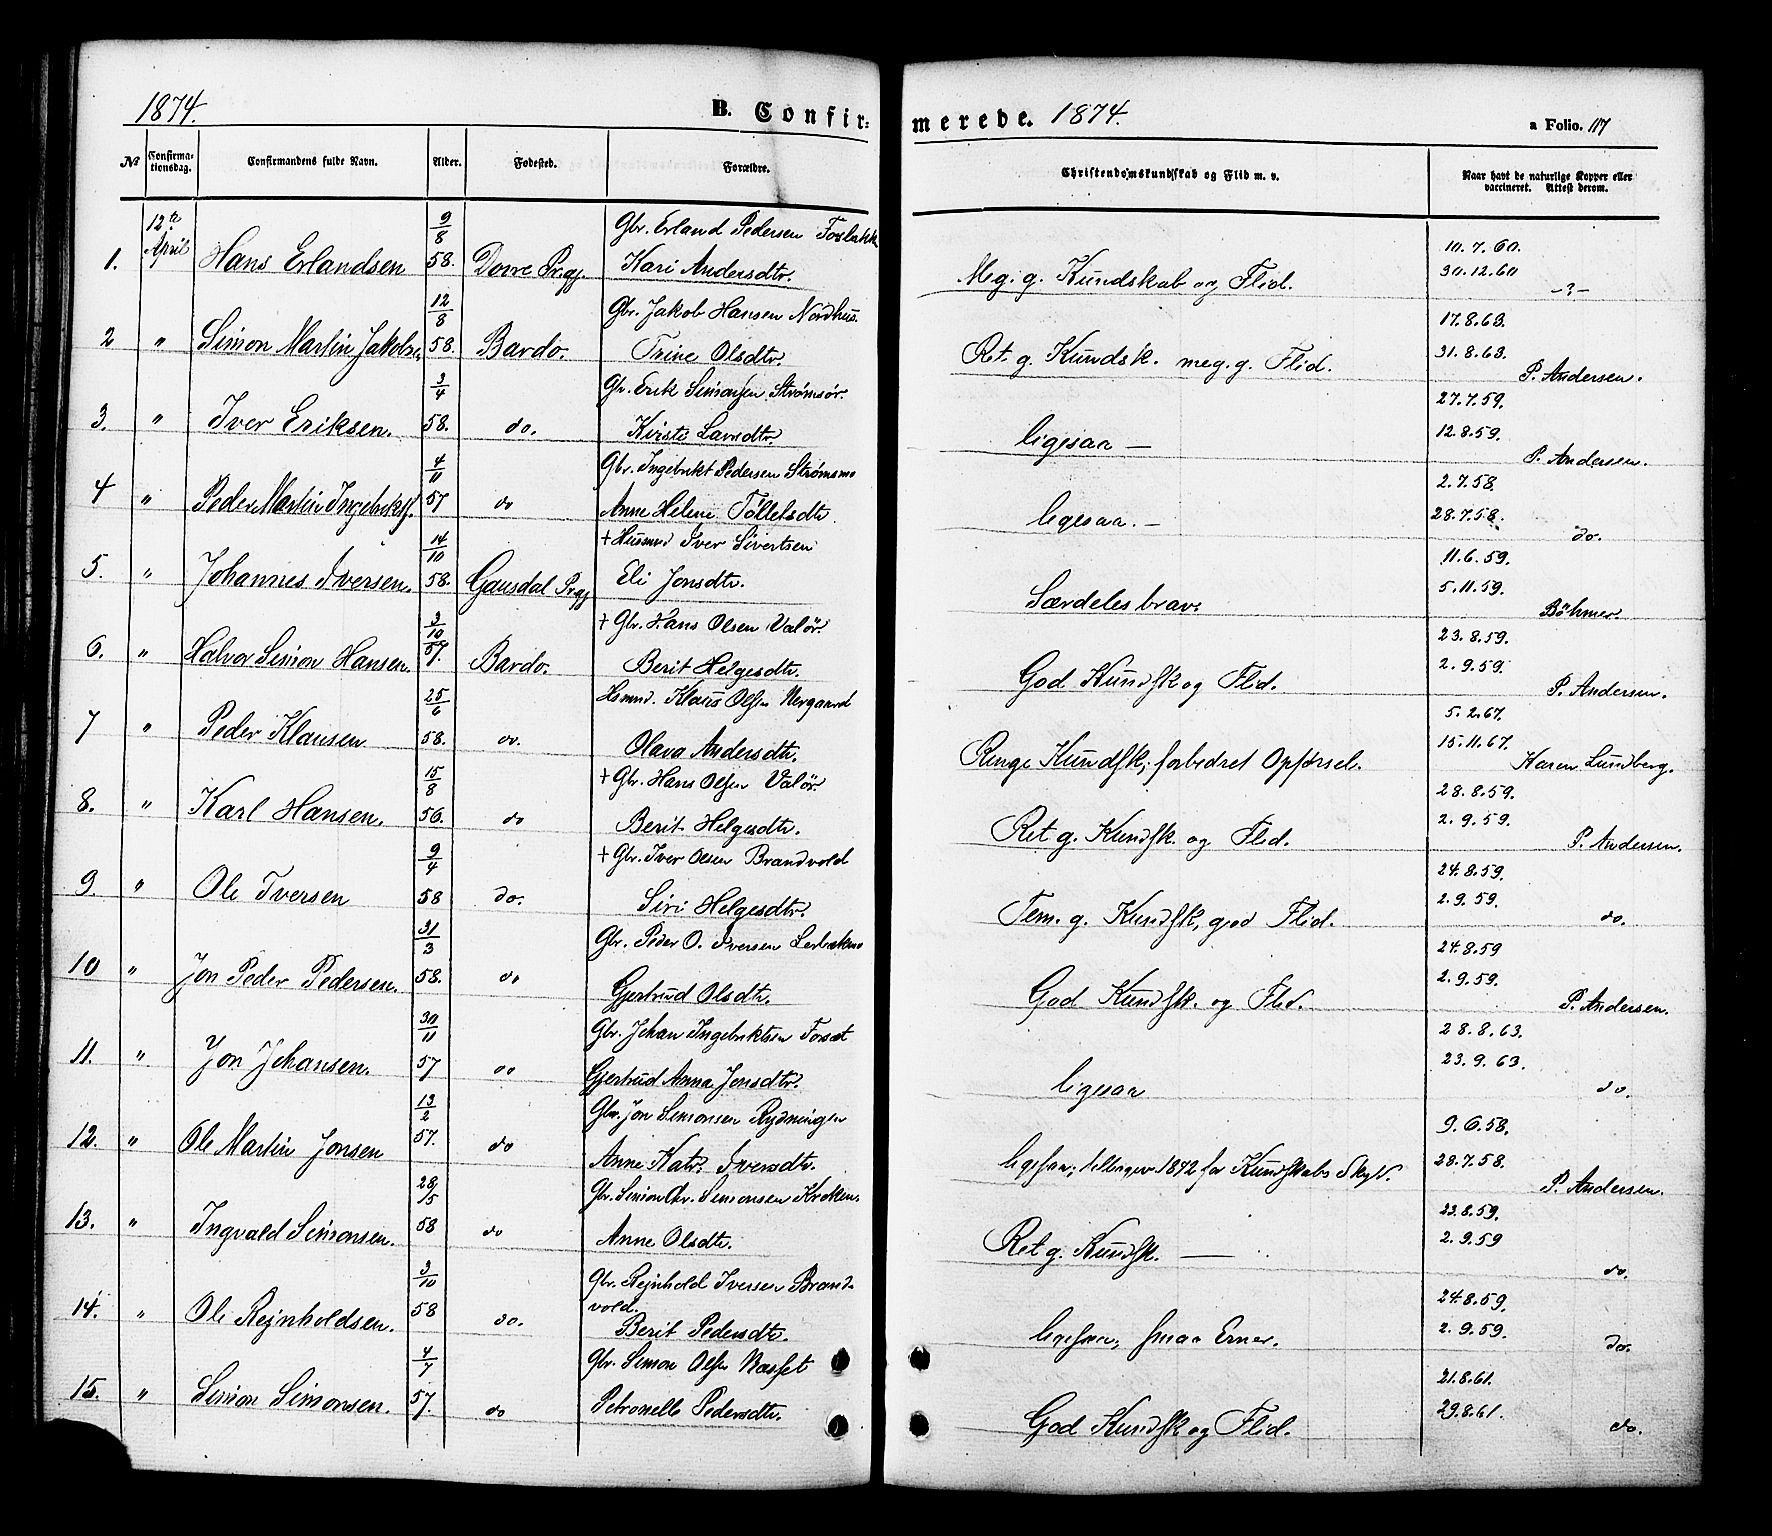 1874. B. Confir= merede. 1874. a Folio. 117
№ Confirma-tionsdag. Confirmandens fulde Navn. Alder. Fødested. Forældre. Christendomskundskab og Flid m. v. Naar havt de naturlige Kopper eller vaccineret. Attest derom.
12te April
1. Hans Erlandsen 9/8 58. Dovre Prgj. Gbr. Erland Pedersen Kari Andersdtr. Meg. g. Kundskab og Flid. 10.7.60. 30.12.60 -?-
2 " Simon Martin Jakobsen 12/8 58. Bardo. Gbr. Jakob Hansen Nordhus. Trine Olsdtr. Ret g. Kundsk. meg. g. Flid. 17.8.63. 31.8.63. P. Andersen.
3. " Iver Eriksen. 3/4 58. do. Gbr. Erik Simonsen Strømsør. Kirsti Larsdtr. ligesaa — 27.7.59. 12.8.59. P. Andersen.
4 " Peder Martin Ingebrikts. 4/11 57 do Gbr. Ingebrikt Pedersen Strømsmo Anne Helene Tollefsdtr. ligesaa. — 2.7.58. 28.7.58. do.
5. " Johannes Iversen. 14/10 58. Gausdal Prgj + Husmd Iver Sivertsen Eli Jonsdtr. Særdeles brav. 11.6.59. 5.11.59. Böhmer.
6. " Halvor Simon Hansen. 3/10 57. Bardo. + Gbr. Hans Olsen Valør. Berit Helgesdtr. God Kundsk og Flid. 23.8.59. 2.9.59. P. Andersen.
7 " Peder Klausen 25/6 58. do. Hsmnd. Klaus Olsen Nergaard Olava Andersdtr. Ringe Kundsk, forbedret Opførsel. 5.2.67. 15.11.67. Karen Lundberg.
8. " Karl Hansen. 15/8 56. do + Gbr. Hans Olsen Valør Berit Helgesdtr. Ret g. Kundsk. og Flid. 28.8.59. 2.9.59. P. Andersen.
9. " Ole Iversen 9/4 58 do. + Gbr. Iver Olsen Brandvold Siri Helgesdtr. Tem. g. Kundsk, god Flid. 24.8.59. 2.9.59. do.
10 " Jon Peder Pedersen. 31/3 58. do Gbr. Peder O. Iversen Gjertrud Olsdtr. God Kundsk. og Flid. 24.8.59 2.9.59. P. Andersen.
11. " Jon Johansen. 30/11 57 do Gbr. Johan Ingebriktsen Forset Gjertrud Anna Jonsdtr. ligesaa 28.8.63. 23.9.63. do.
12. " Ole Martin Jonsen 13/2 57. do Gbr. Jon Simonsen Rydningen Anne Katr. Iversdtr. ligesaa; 1872 for Kundskabs Skyld. 9.6.58. 28.7.58. P. Andersen.
13. " Ingvald Simonsen. 28/5 58 do Gbr. Simon Chr. Simonsen Kroken. Anne Olsdtr. Ret g. Kundsk. — 23.8.59. 2.9.59 do.
14. " Ole Rejnholdsen. 3/10 58 do. Gbr. Rejnhold Iversen Brand-
vold. Berit Pedersdtr. ligesaa, smaa Evner. 24.8.59. 2.9.59. do.
15. " Simon Simonsen. 4/7 57. do Gbr. Simon Olsen Næsset Petronelle Pedersdtr. God Kundsk og Flid. 21.8.61. 29.8.61. do.